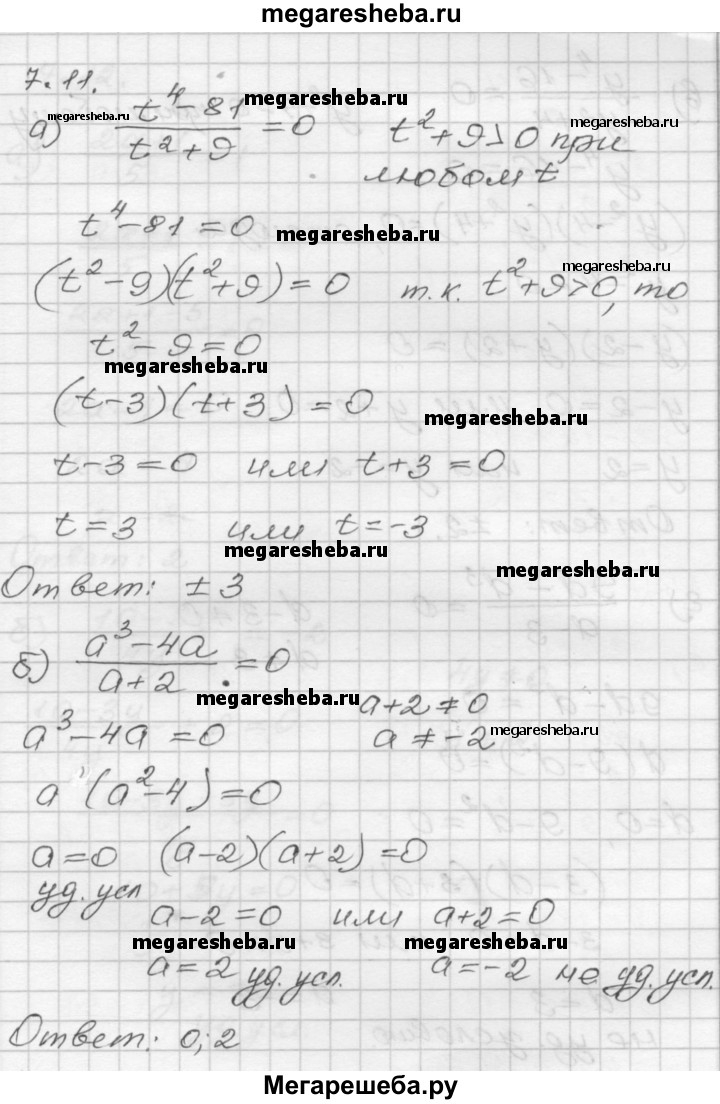 megaresheba.ru
7.11.
а) (t⁴-81)/(t²+9) = 0   t²+9>0 при
любом t
megaresheba.ru megaresheba.ru megaresheba.ru
t⁴-81=0
megaresheba.ru
(t²-9)(t²+9)=0   т.к. t²+9>0, то
megaresheba.ru
t²-9=0
megaresheba.ru
(t-3)(t+3)=0
megaresheba.ru
t-3=0 или t+3=0
t=3 или t=-3
megaresheba.ru megaresheba.ru
Ответ: ±3
б) (a³-4a)/(a+2) = 0
megaresheba.ru
a+2≠0
a³-4a=0   a≠-2
megaresheba.ru
a(a²-4)=0
a=0   (a-2)(a+2)=0
уд. усл
a-2=0 или a+2=0
megaresheba.ru megaresheba.ru
a=2 уд. усл.   a=-2 не уд. усл.
Ответ: 0; 2
Мегарешеба.ру